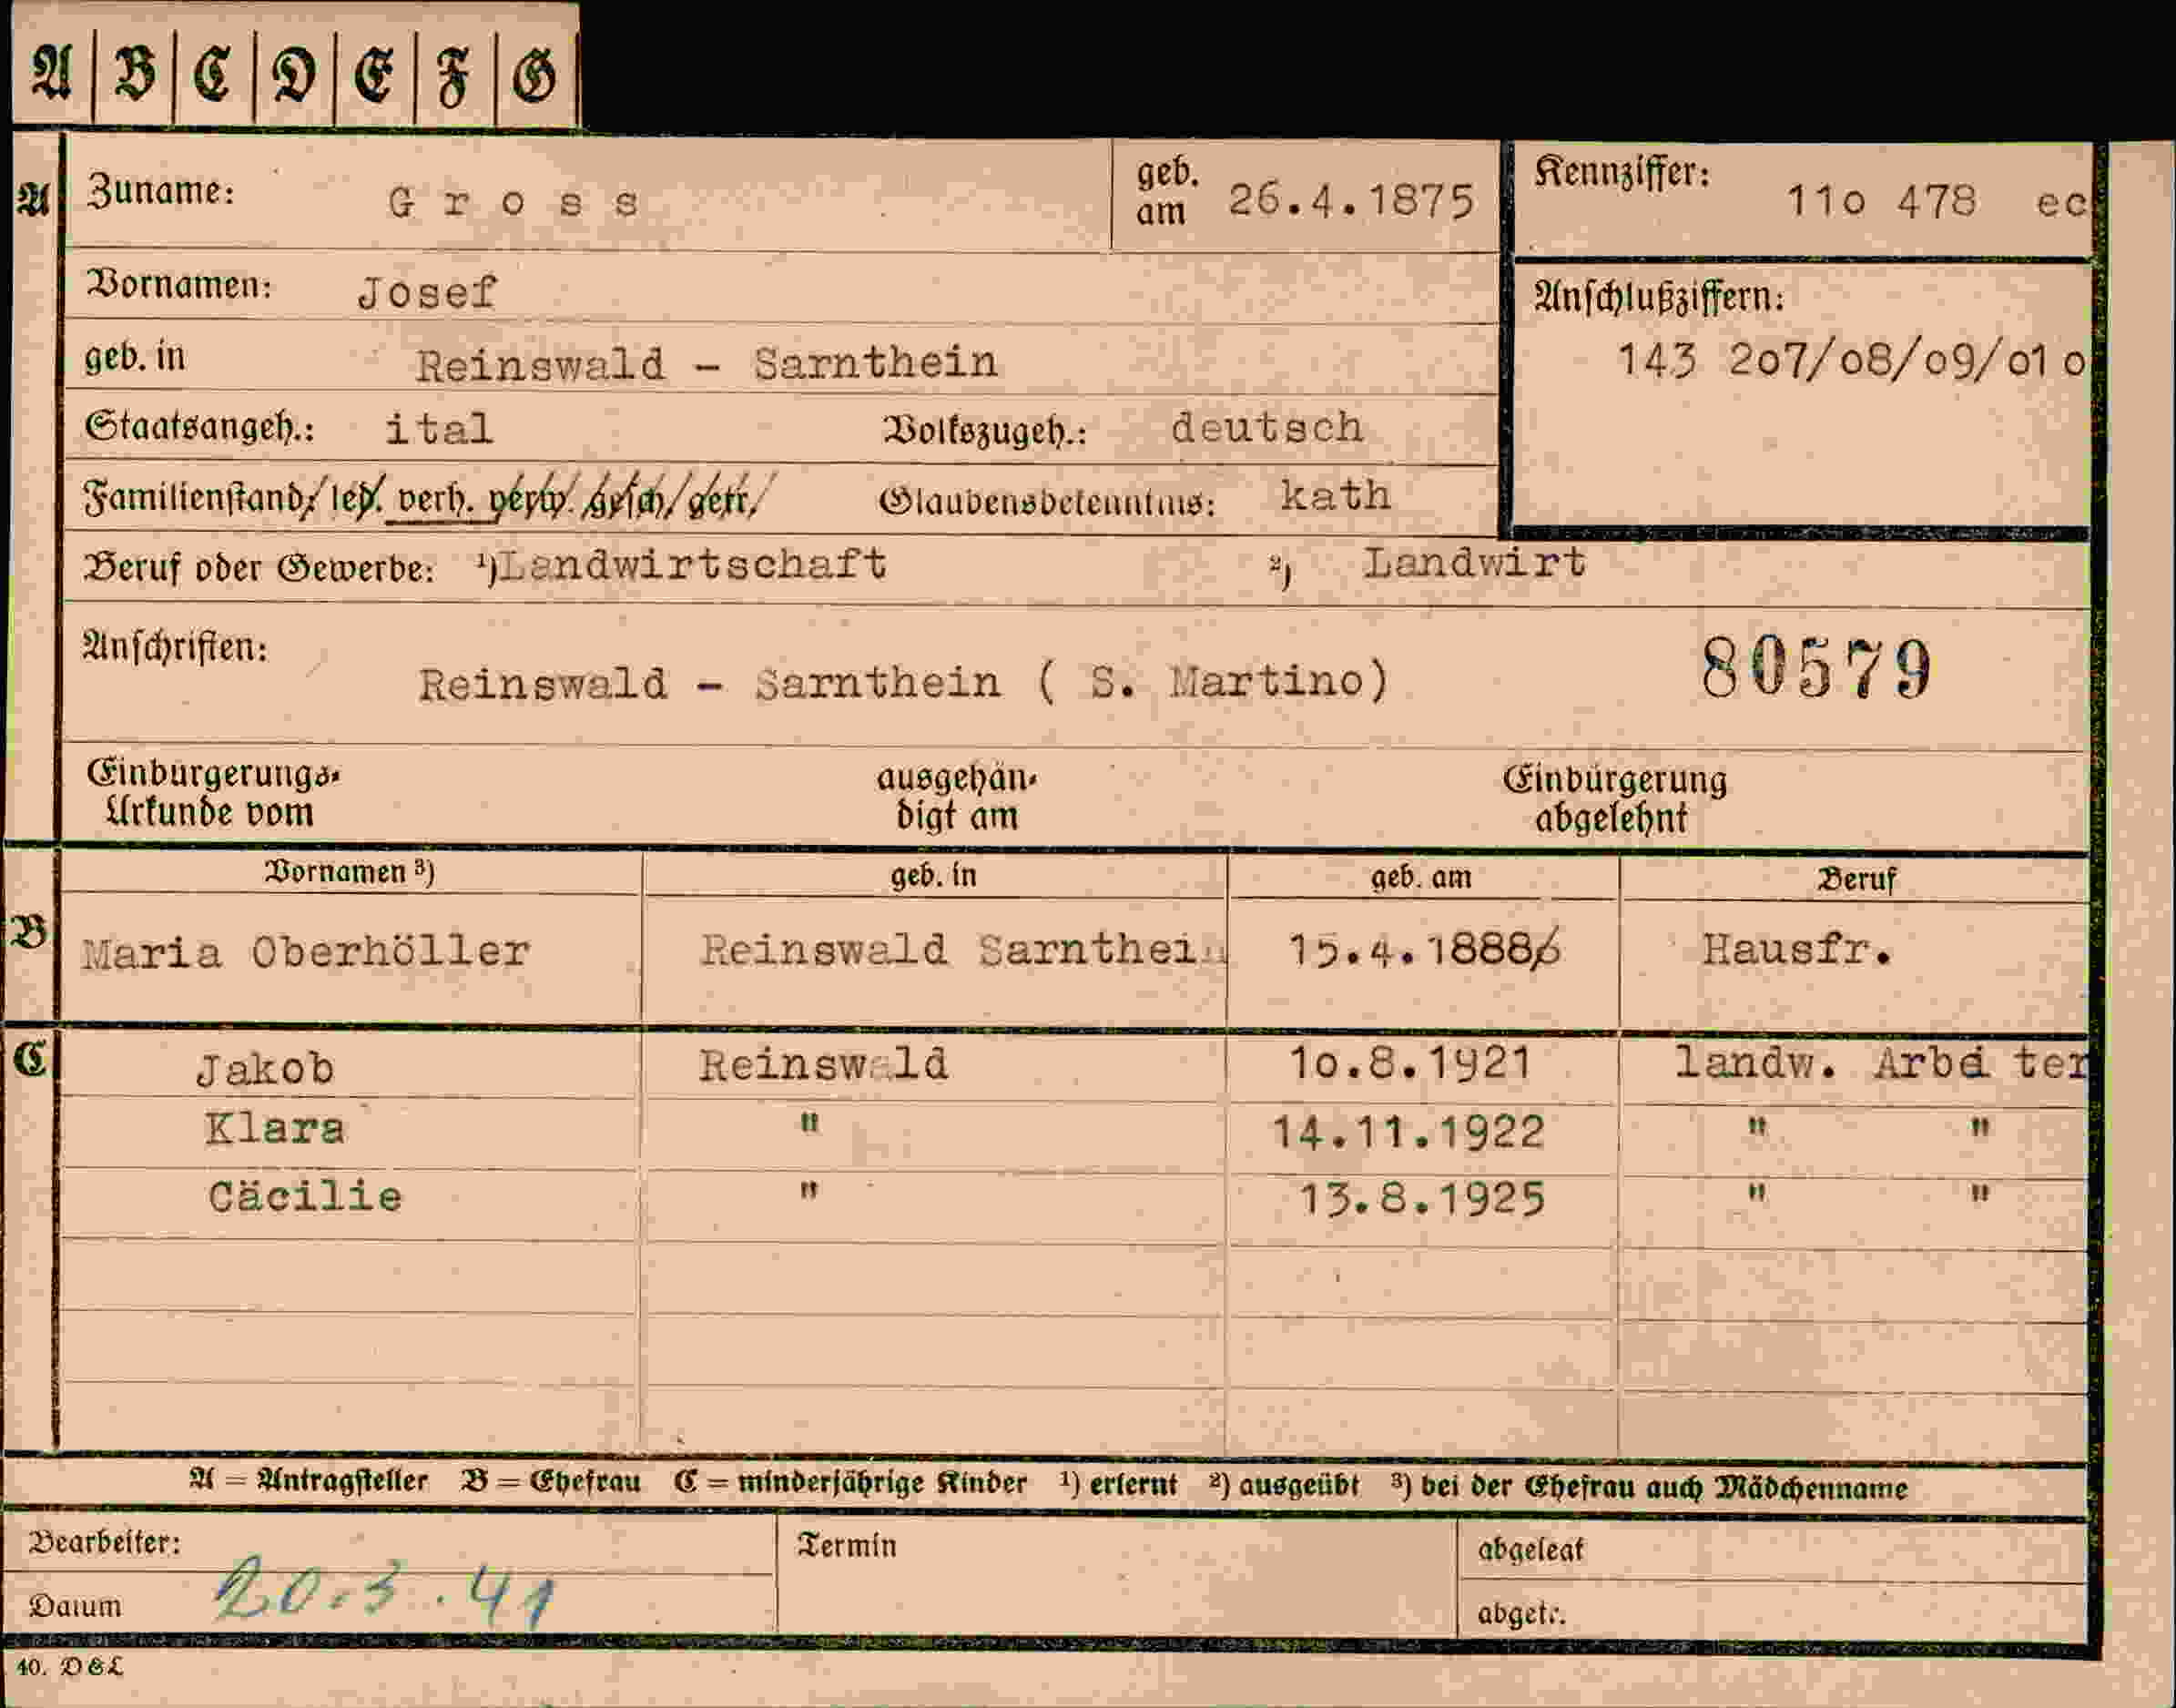 A B C D E F G
A Zuname: Gross geb. am 26.4.1875 Kennziffer: 11o 478 ec
Vornamen: Josef Anschlußziffern:
geb. in Reinswald - Sarnthein 143 2o7/o8/o9/o1o
Staatsangeh.: ital Volkszugeh.: deutsch
Familienstand: led. verh. verw. gesch. getr. Glaubensbekenntnis: kath
Beruf oder Gewerbe: ¹)Landwirtschaft ²) Landwirt
Anschriften: 80579
Reinswald - Sarnthein ( S. Martino)
Einbürgerungs- ausgehän- Einbürgerung
Urkunde vom digt am abgelehnt
Vornamen ³) geb. in geb. am Beruf
B Maria Oberhöller Reinswald Sarnthein 15.4.18886 Hausfr.
C Jakob Reinswald 1o.8.1921 landw. Arbeiter
Klara " 14.11.1922 " "
Cäcilie " 13.8.1925 " "
A = Antragsteller B = Ehefrau C = minderjährige Kinder ¹) erlernt ²) ausgeübt ³) bei der Ehefrau auch Mädchenname
Bearbeiter: Termin abgelegt
Datum 20.3.41 abgetr.
40. D&L